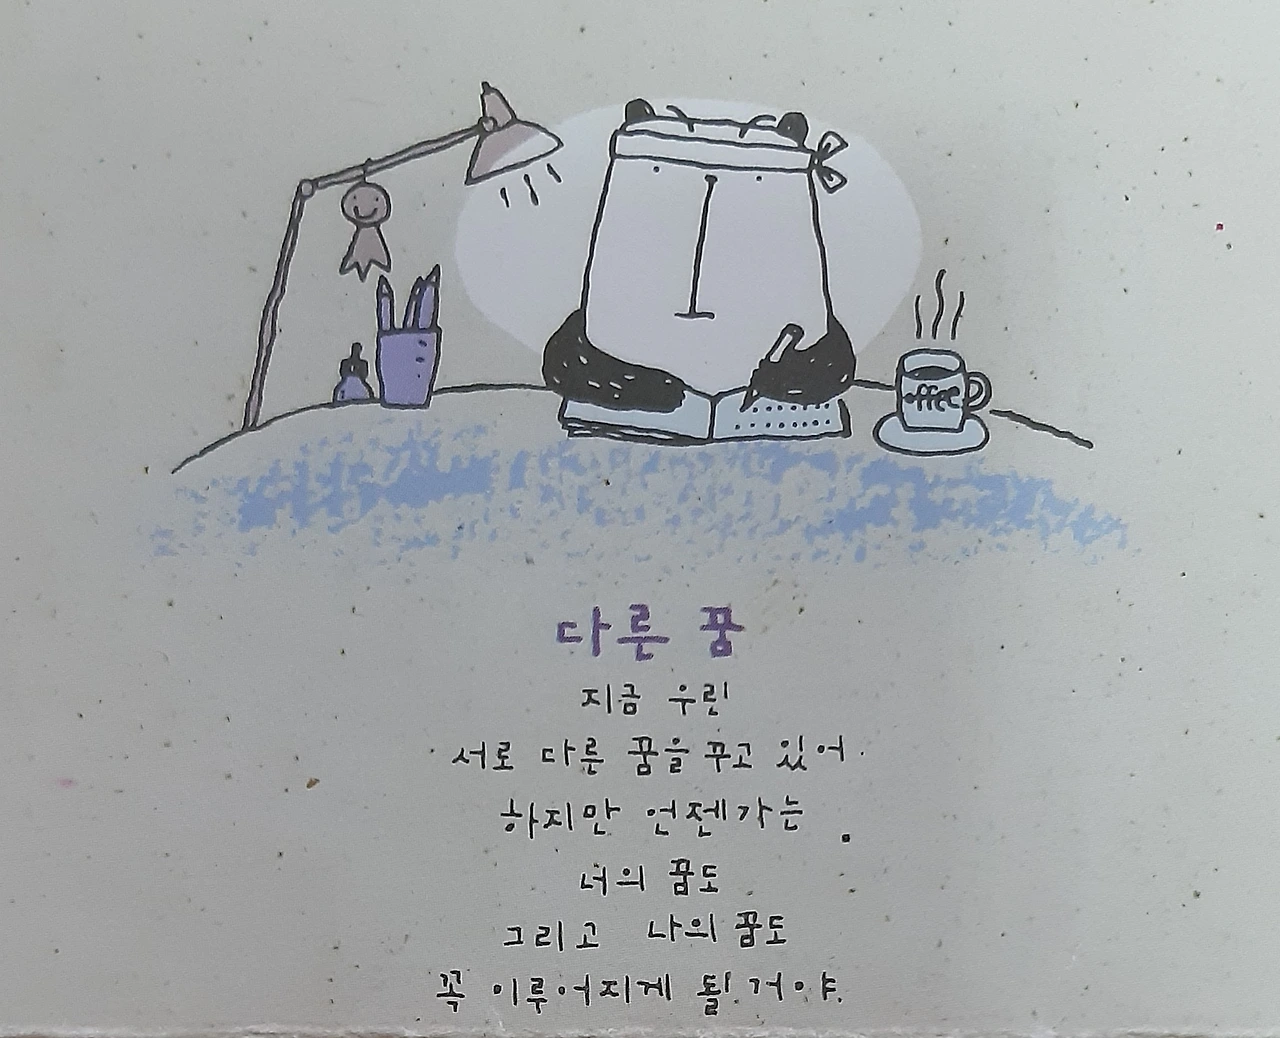 offee
다른 꿈
지금 우린
서로 다른 꿈을 꾸고 있어.
하지만 언젠가는
너의 꿈도
그리고 나의 꿈도
꼭 이루어지게 될거야.